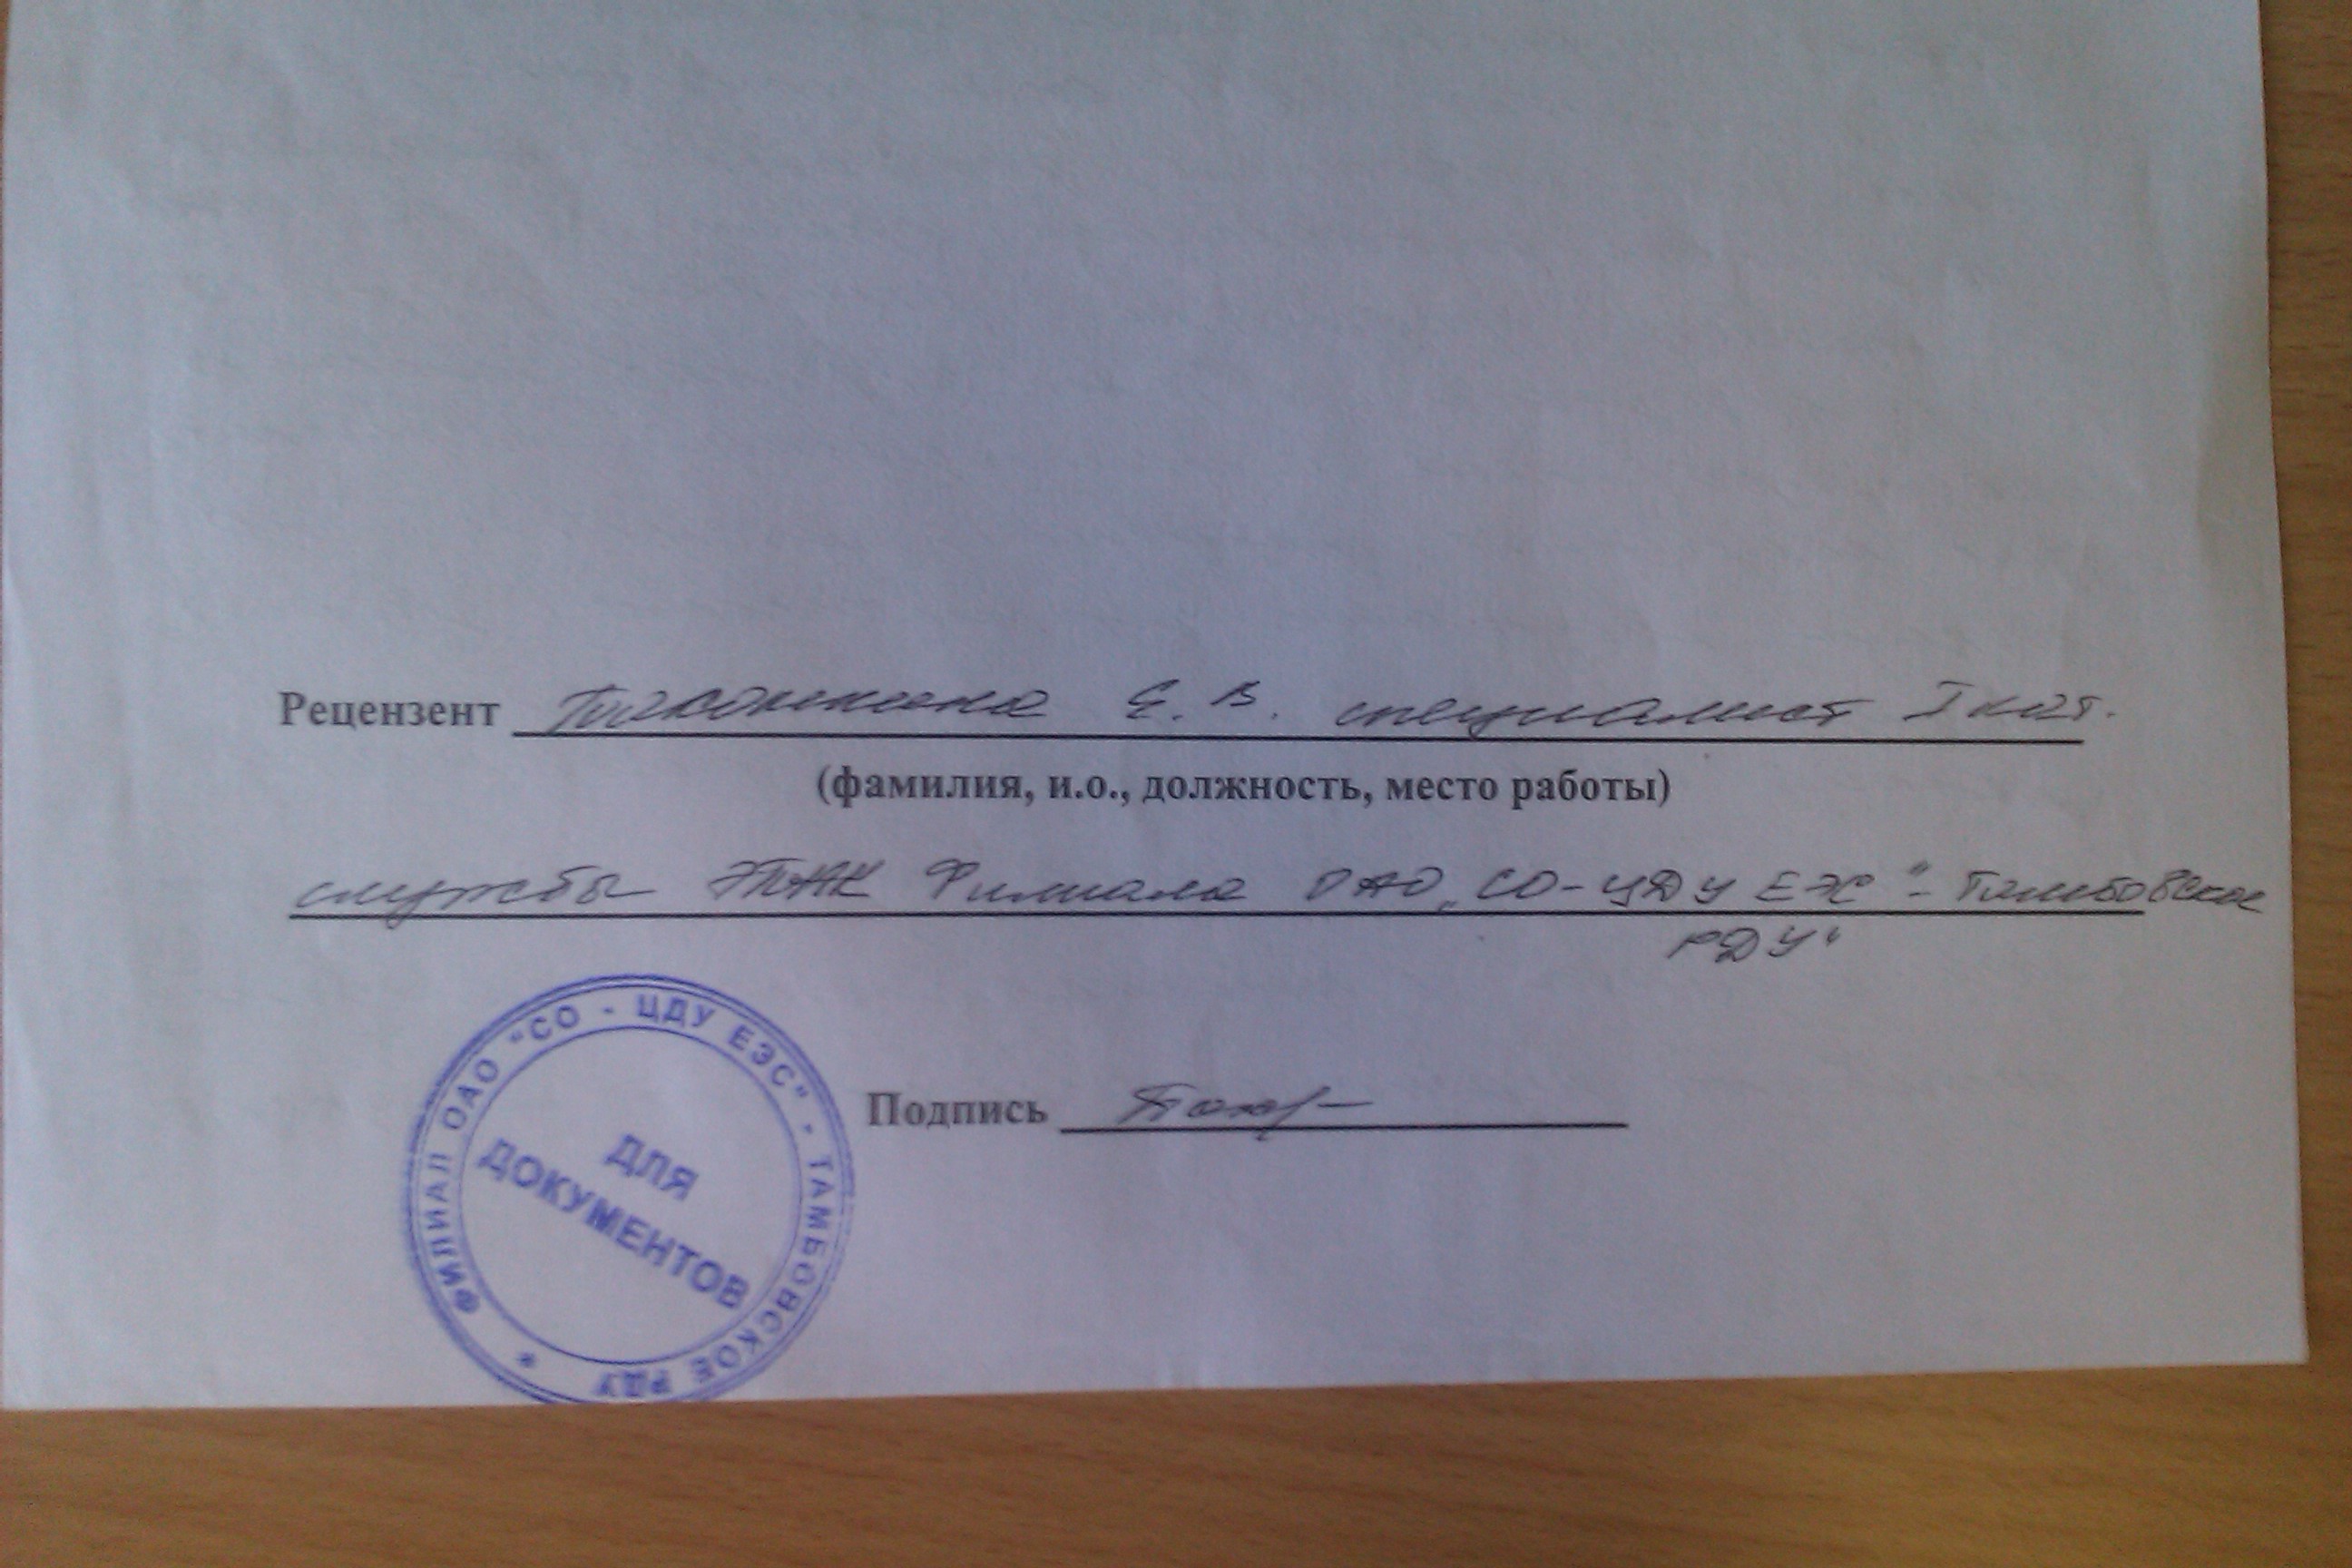 Рецензент Е. В. специалист I кат.
(фамилия, и.о., должность, место работы)
службы ЭПАК Филиала ОАО „СО-ЦДУ ЕЭС"- Тамбовское
РДУ"
ФИЛИАЛ ОАО "СО - ЦДУ ЕЭС" - ТАМБОВСКОЕ РДУ *
ДЛЯ
ДОКУМЕНТОВ
Подпись